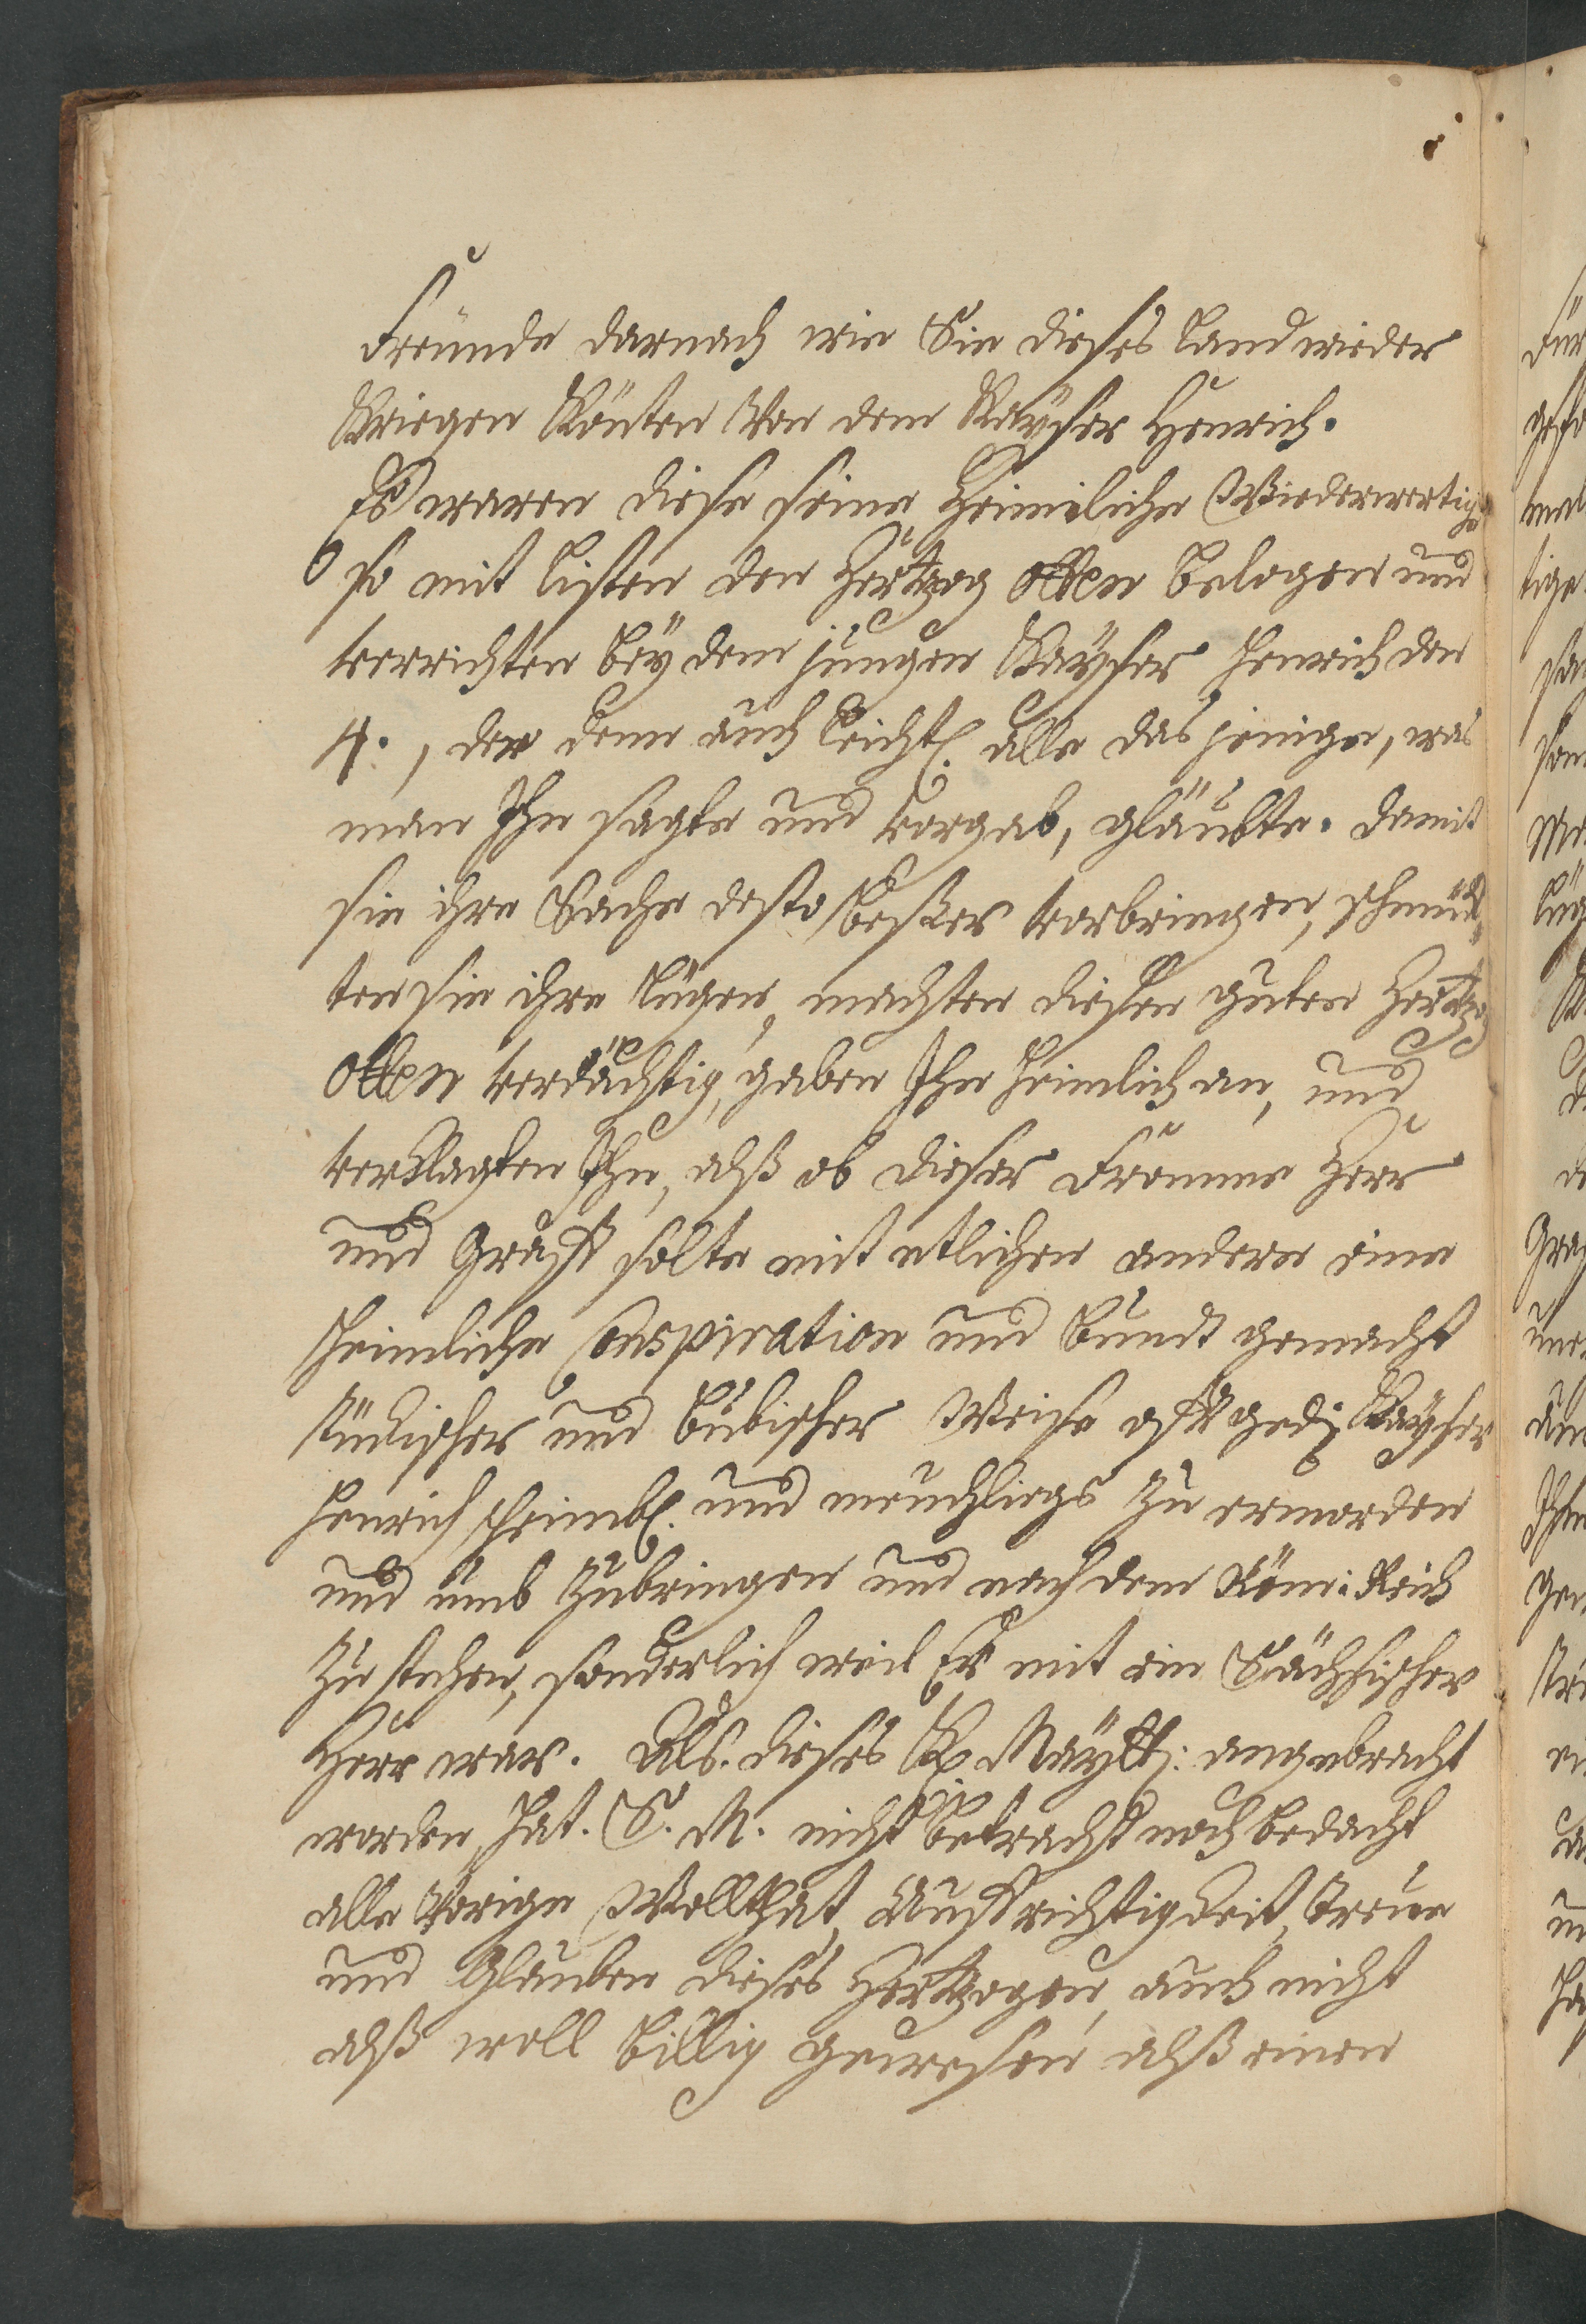 Freunde darnach wie Sie dieses Land wieder
Kriegen Könten Von dem Kayser Henrich.
Es waren diese seine Heimliche Wiederwertige
so mit listen den Hertzog Otten belogen und
verrichten bey dem jungen Kayser Henrich den
4., der denn auch leichtl. alle das jenige, was
man Ihn sagte und vorgab, gläubte. Damit
sie ihre Sache desto beßer vorbringen, schmück-
ten sie ihre Lügen, machten diesen guten Hertzog
Otten verdächtig, gaben Ihn heimlich an, und
verklagten Ihn, alß ob dieser Fromme Herr
und Graff solte mit etlichen andern eine
heimliche Conspiration und Bundt gemacht
tückischer und bubischer Weise Kayser
Henrich heiml. und meuchlings zu ermorden
und umb zubringen und nach dem Röm: Reich
zu stehen, sonderlich weil Er mit ein Sächsischer
Herr war. Als dieses K. Maytt: angebracht
worden, hat S. M. nicht betracht noch bedacht
alle Vorige Wollthat, Auffrichtigkeit, Treue
und Glauben dieses Hertzogen, auch nicht
alß woll billig gewesen alß einen